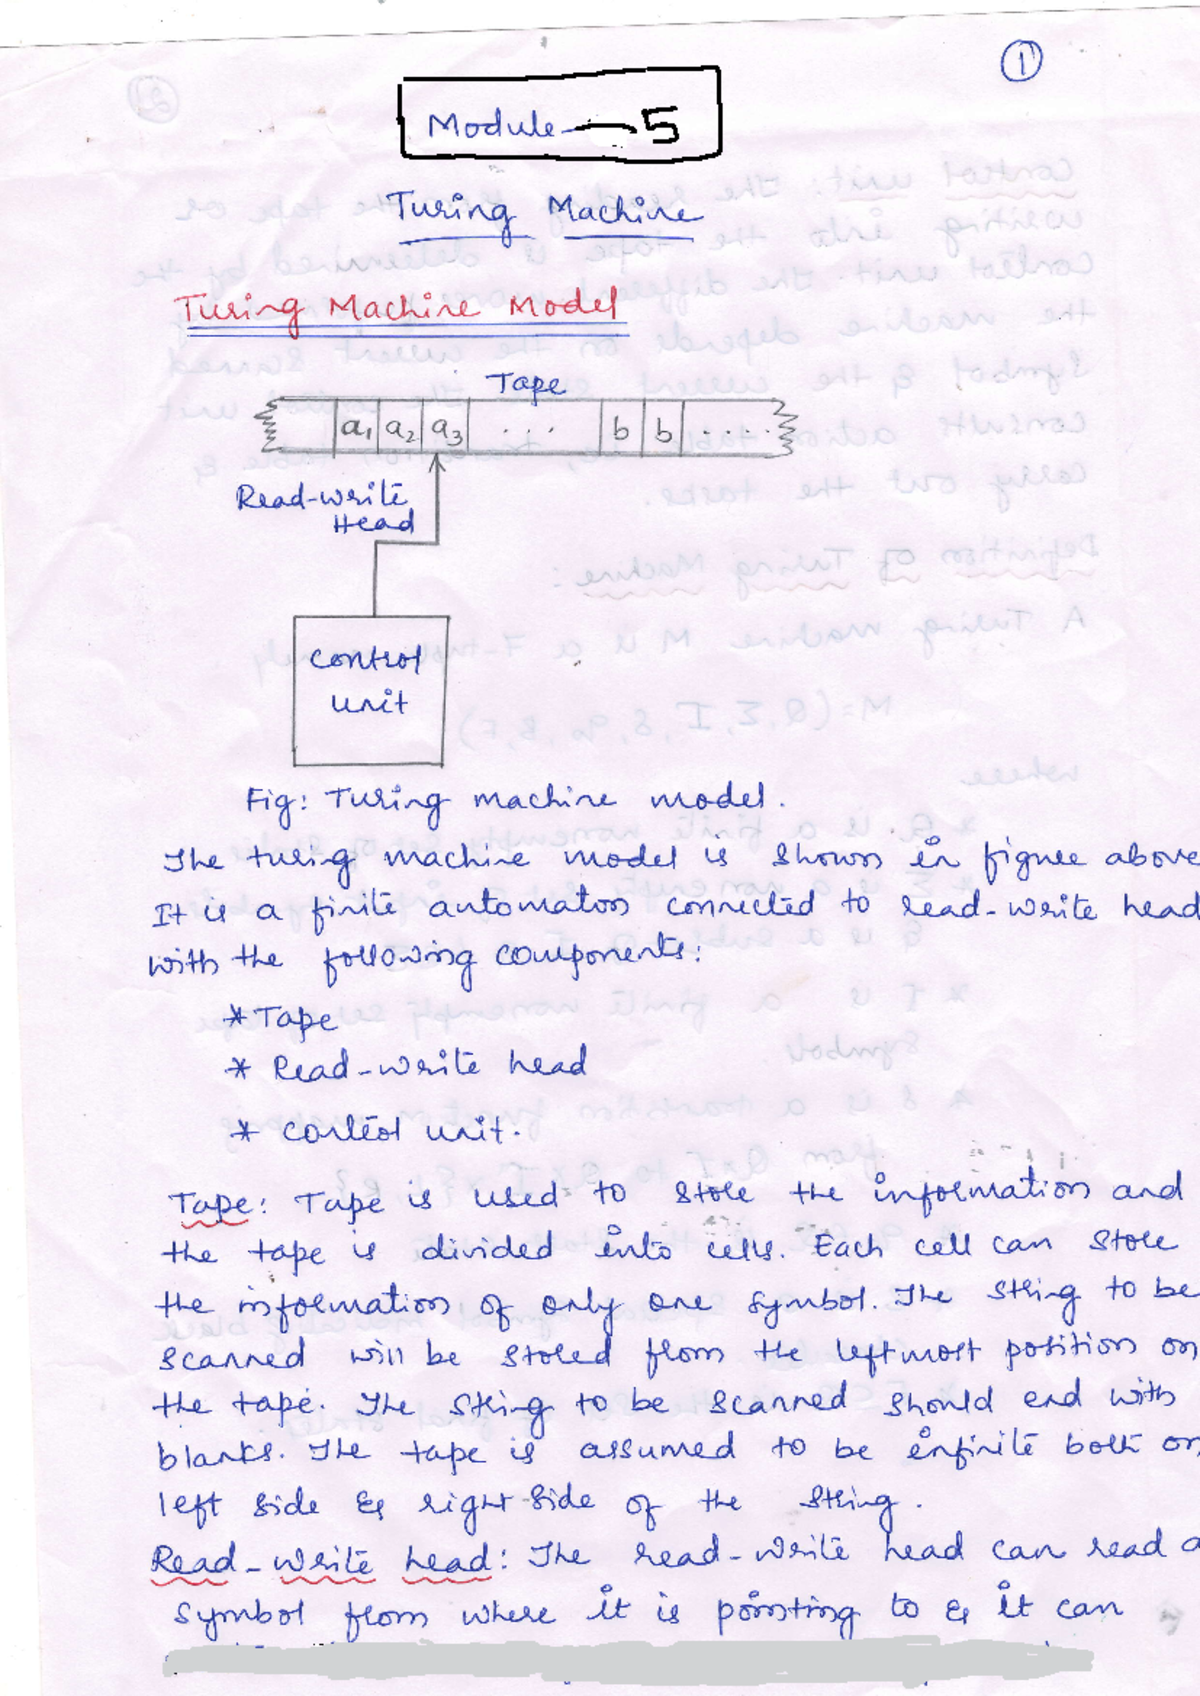 1
Module - 5
Turing Machine
Turing Machine Model
Tape
a1 a2 a3 . . . b b . . . .
Read-write
Head
control
unit
Fig: Turing machine model.
The turing machine model is shown in figure above
It is a finite automaton connected to read-write head
with the following components:
* Tape
* Read-write head
* control unit.
Tape: Tape is used to store the information and
the tape is divided into cells. Each cell can store
the information of only one symbol. The string to be
scanned will be stored from the leftmost position on
the tape. The string to be scanned should end with
blanks. The tape is assumed to be infinite both on
left side & right side of the string.
Read-write head: The read-write head can read a
symbol from where it is pointing to & it can